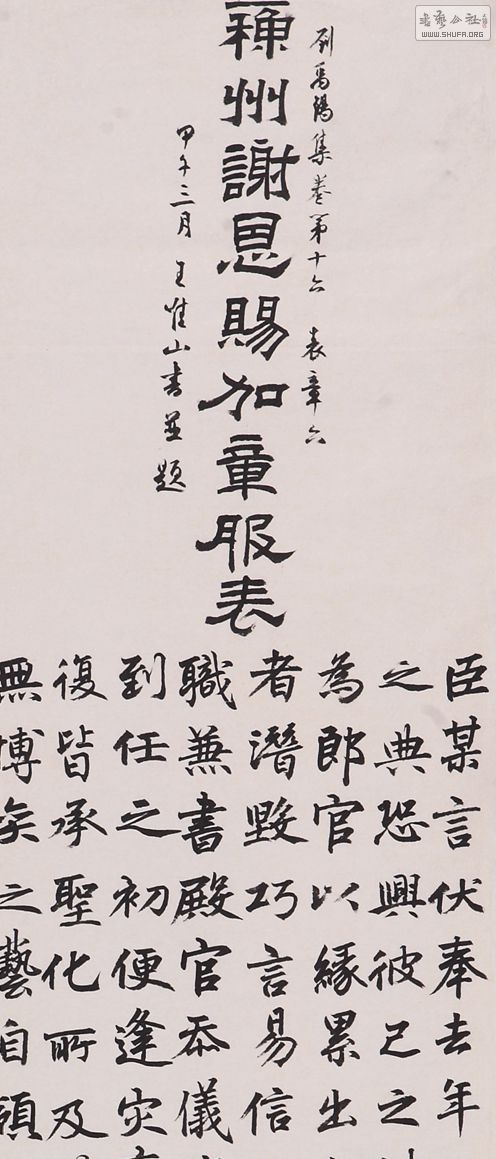 書藝公社
WWW.SHUFA.ORG
劉禹錫集卷第十六 表章六
蘇州謝恩賜加章服表
甲午三月 王惟山書並題
臣某言伏奉去年
之典恐興彼己之
為郎官以緣累出
者潛毀巧言易信
職兼書殿官忝儀
到任之初便逢灾
復皆承聖化所及
無博矣之藝自領